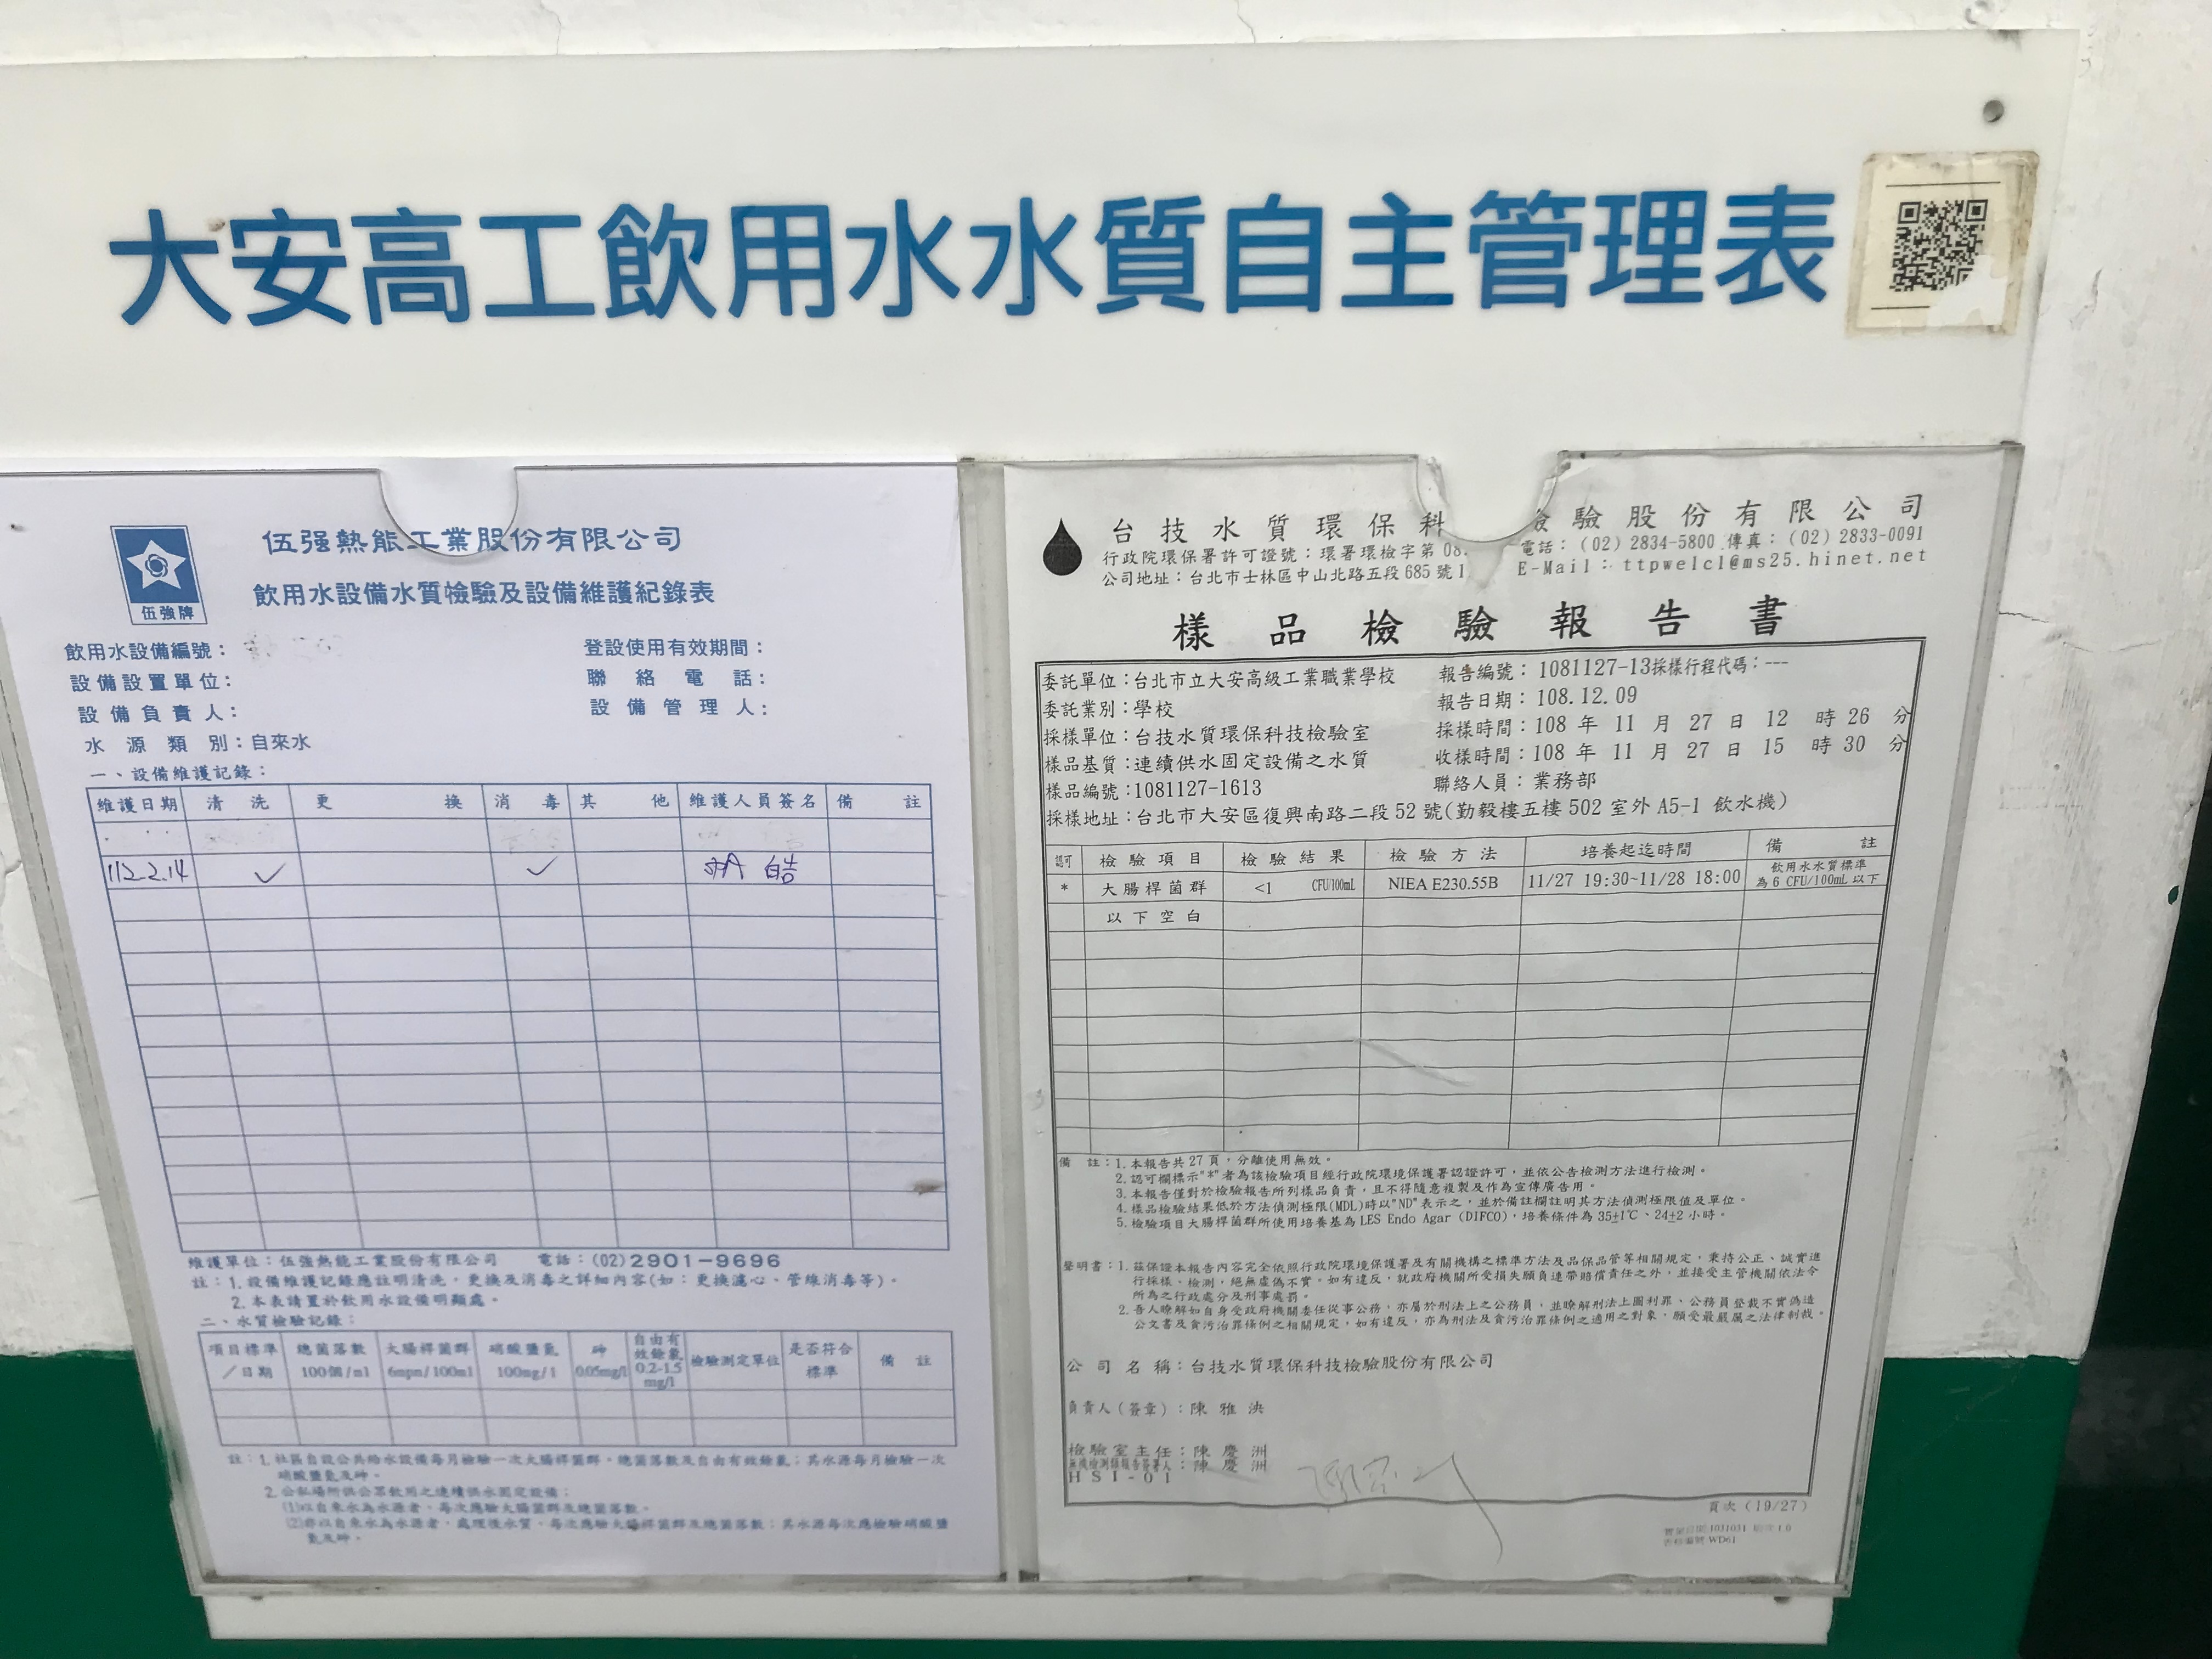 大安高工飲用水水質自主管理表
伍强熱能工業股份有限公司
伍強牌
飲用水設備水質檢驗及設備維護紀錄表
飲用水設備編號： 登設使用有效期間：
設備設置單位： 聯絡電話：
設備負責人： 設備管理人：
水源類別：自來水
一、設備維護記錄：
維護日期 清洗 更換 消毒 其他 維護人員簽名 備註
112.2.14 ✓ ✓ 皓
維護單位：伍強熱能工業股份有限公司 電話：(02)2901-9696
註：1. 設備維護記錄應註明清洗，更換及消毒之詳細內容(如：更換濾心、管線消毒等)。
2. 本表請置於飲用水設備明顯處。
二、水質檢驗記錄：
項目標準／日期 總菌落數 100個/ml 大腸桿菌群 6mpn/100ml 硝酸鹽氮 100mg/l 砷 0.05mg/l 自由有效餘氯 0.2-1.5 mg/l 檢驗測定單位 是否符合標準 備註
註：1. 社區自設公共給水設備每月檢驗一次大腸桿菌群，總菌落數及自由有效餘氯；其水源每月檢驗一次
硝酸鹽氮及砷。
2. 公私場所供公眾飲用之連續供水固定設備：
(1)以自來水為水源者，每次應驗大腸桿菌群及總菌落數。
(2)非以自來水為水源者，處理後水質，每次應驗大腸桿菌群及總菌落數；其水源每次應檢驗硝酸鹽
氮及砷。
台技水質環保科 驗股份有限公司
行政院環保署許可證號：環署環檢字第 08 電話：(02) 2834-5800 傳真：(02) 2833-0091
公司地址：台北市士林區中山北路五段 685 號 1 E-Mail：ttpwelcl@ms25.hinet.net
樣品檢驗報告書
委託單位：台北市立大安高級工業職業學校 報告編號：1081127-13採樣行程代碼：---
委託業別：學校 報告日期：108.12.09
採樣單位：台技水質環保科技檢驗室 採樣時間：108 年 11 月 27 日 12 時 26 分
樣品基質：連續供水固定設備之水質 收樣時間：108 年 11 月 27 日 15 時 30 分
樣品編號：1081127-1613 聯絡人員：業務部
採樣地址：台北市大安區復興南路二段 52 號(勤毅樓五樓 502 室外 A5-1 飲水機)
認可 檢驗項目 檢驗結果 檢驗方法 培養起迄時間 備註
* 大腸桿菌群 <1 CFU/100mL NIEA E230.55B 11/27 19:30~11/28 18:00 飲用水水質標準為 6 CFU/100mL 以下
以下空白
備註：1. 本報告共 27 頁，分離使用無效。
2. 認可欄標示"*"者為該檢驗項目經行政院環境保護署認證許可，並依公告檢測方法進行檢測。
3. 本報告僅對於檢驗報告所列樣品負責，且不得隨意複製及作為宣傳廣告用。
4. 樣品檢驗結果低於方法偵測極限(MDL)時以"ND"表示之，並於備註欄註明其方法偵測極限值及單位。
5. 檢驗項目大腸桿菌群所使用培養基為 LES Endo Agar (DIFCO)，培養條件為 35±1℃、24±2 小時。
聲明書：1. 茲保證本報告內容完全依照行政院環境保護署及有關機構之標準方法及品保品管等相關規定，秉持公正、誠實進
行採樣、檢測，絕無虛偽不實。如有違反，就政府機關所受損失願負連帶賠償責任之外，並接受主管機關依法令
所為之行政處分及刑事處罰。
2. 吾人瞭解如自身受政府機關委任從事公務，亦屬於刑法上之公務員，並瞭解刑法上圖利罪、公務員登載不實偽造
公文書及貪污治罪條例之相關規定，如有違反，亦為刑法及貪污治罪條例之適用之對象，願受最嚴厲之法律制裁。
公司名稱：台技水質環保科技檢驗股份有限公司
負責人(簽章)：陳雅泱
檢驗室主任：陳慶洲
無機檢測類報告簽署人：陳慶洲
HSI-01
頁次 (19/27)